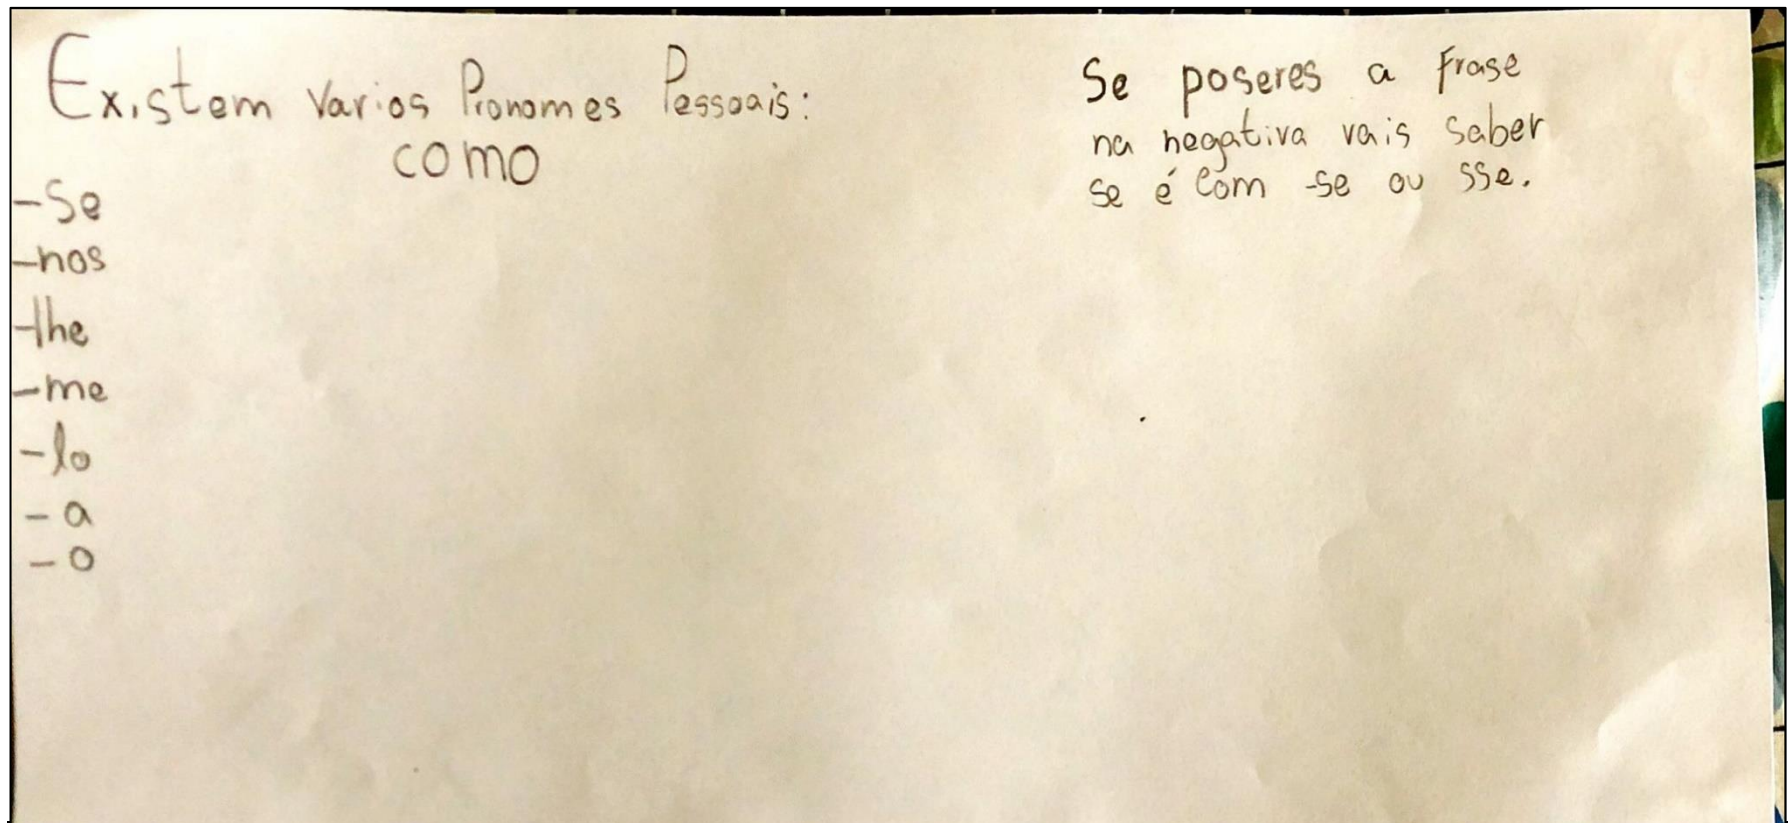 Existem varios Pronomes Pessoais:
como
-se
-nos
-lhe
-me
-lo
-a
-o
Se poseres a frase
na negativa vais saber
se é com -se ou sse.